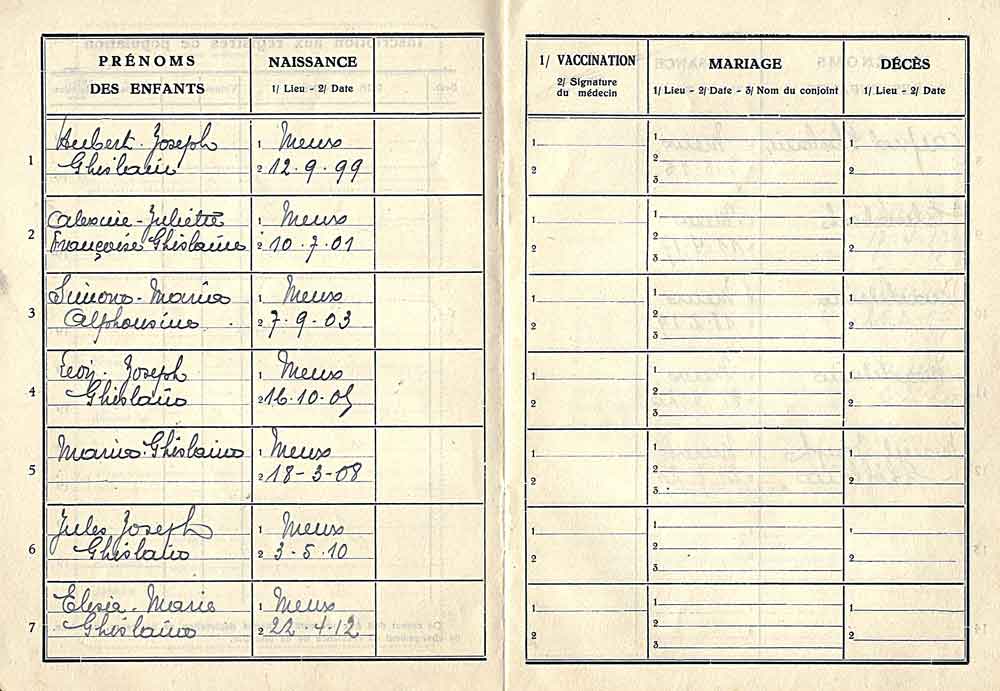 PRÉNOMS
DES ENFANTS
NAISSANCE
1/ Lieu - 2/ Date
1
Hubert - Joseph
Ghislain
1 Meux
2 12.9.99
2
Juliette
Françoise Ghislaine
1 Meux
2 10.7.01
3
Simone - Maria
Alphonsine
1 Meux
2 7-9-03
4
Léon - Joseph
Ghislain
1 Meux
2 16.10.05
5
Maria-Ghislaine
1 Meux
2 18-3-08
6
Jules Joseph
Ghislain
1 Meux
2 3.5.10
7
Marie
Ghislaine
1 Meux
2 22.4.12
1/ VACCINATION
2/ Signature
du médecin
MARIAGE
1/ Lieu - 2/ Date - 3/ Nom du conjoint
DÉCÈS
1/ Lieu - 2/ Date
1
2
1
2
3
1
2
1
2
1
2
3
1
2
1
2
1
2
3
1
2
1
2
1
2
3
1
2
1
2
1
2
3
1
2
1
2
1
2
3
1
2
1
2
1
2
3
1
2